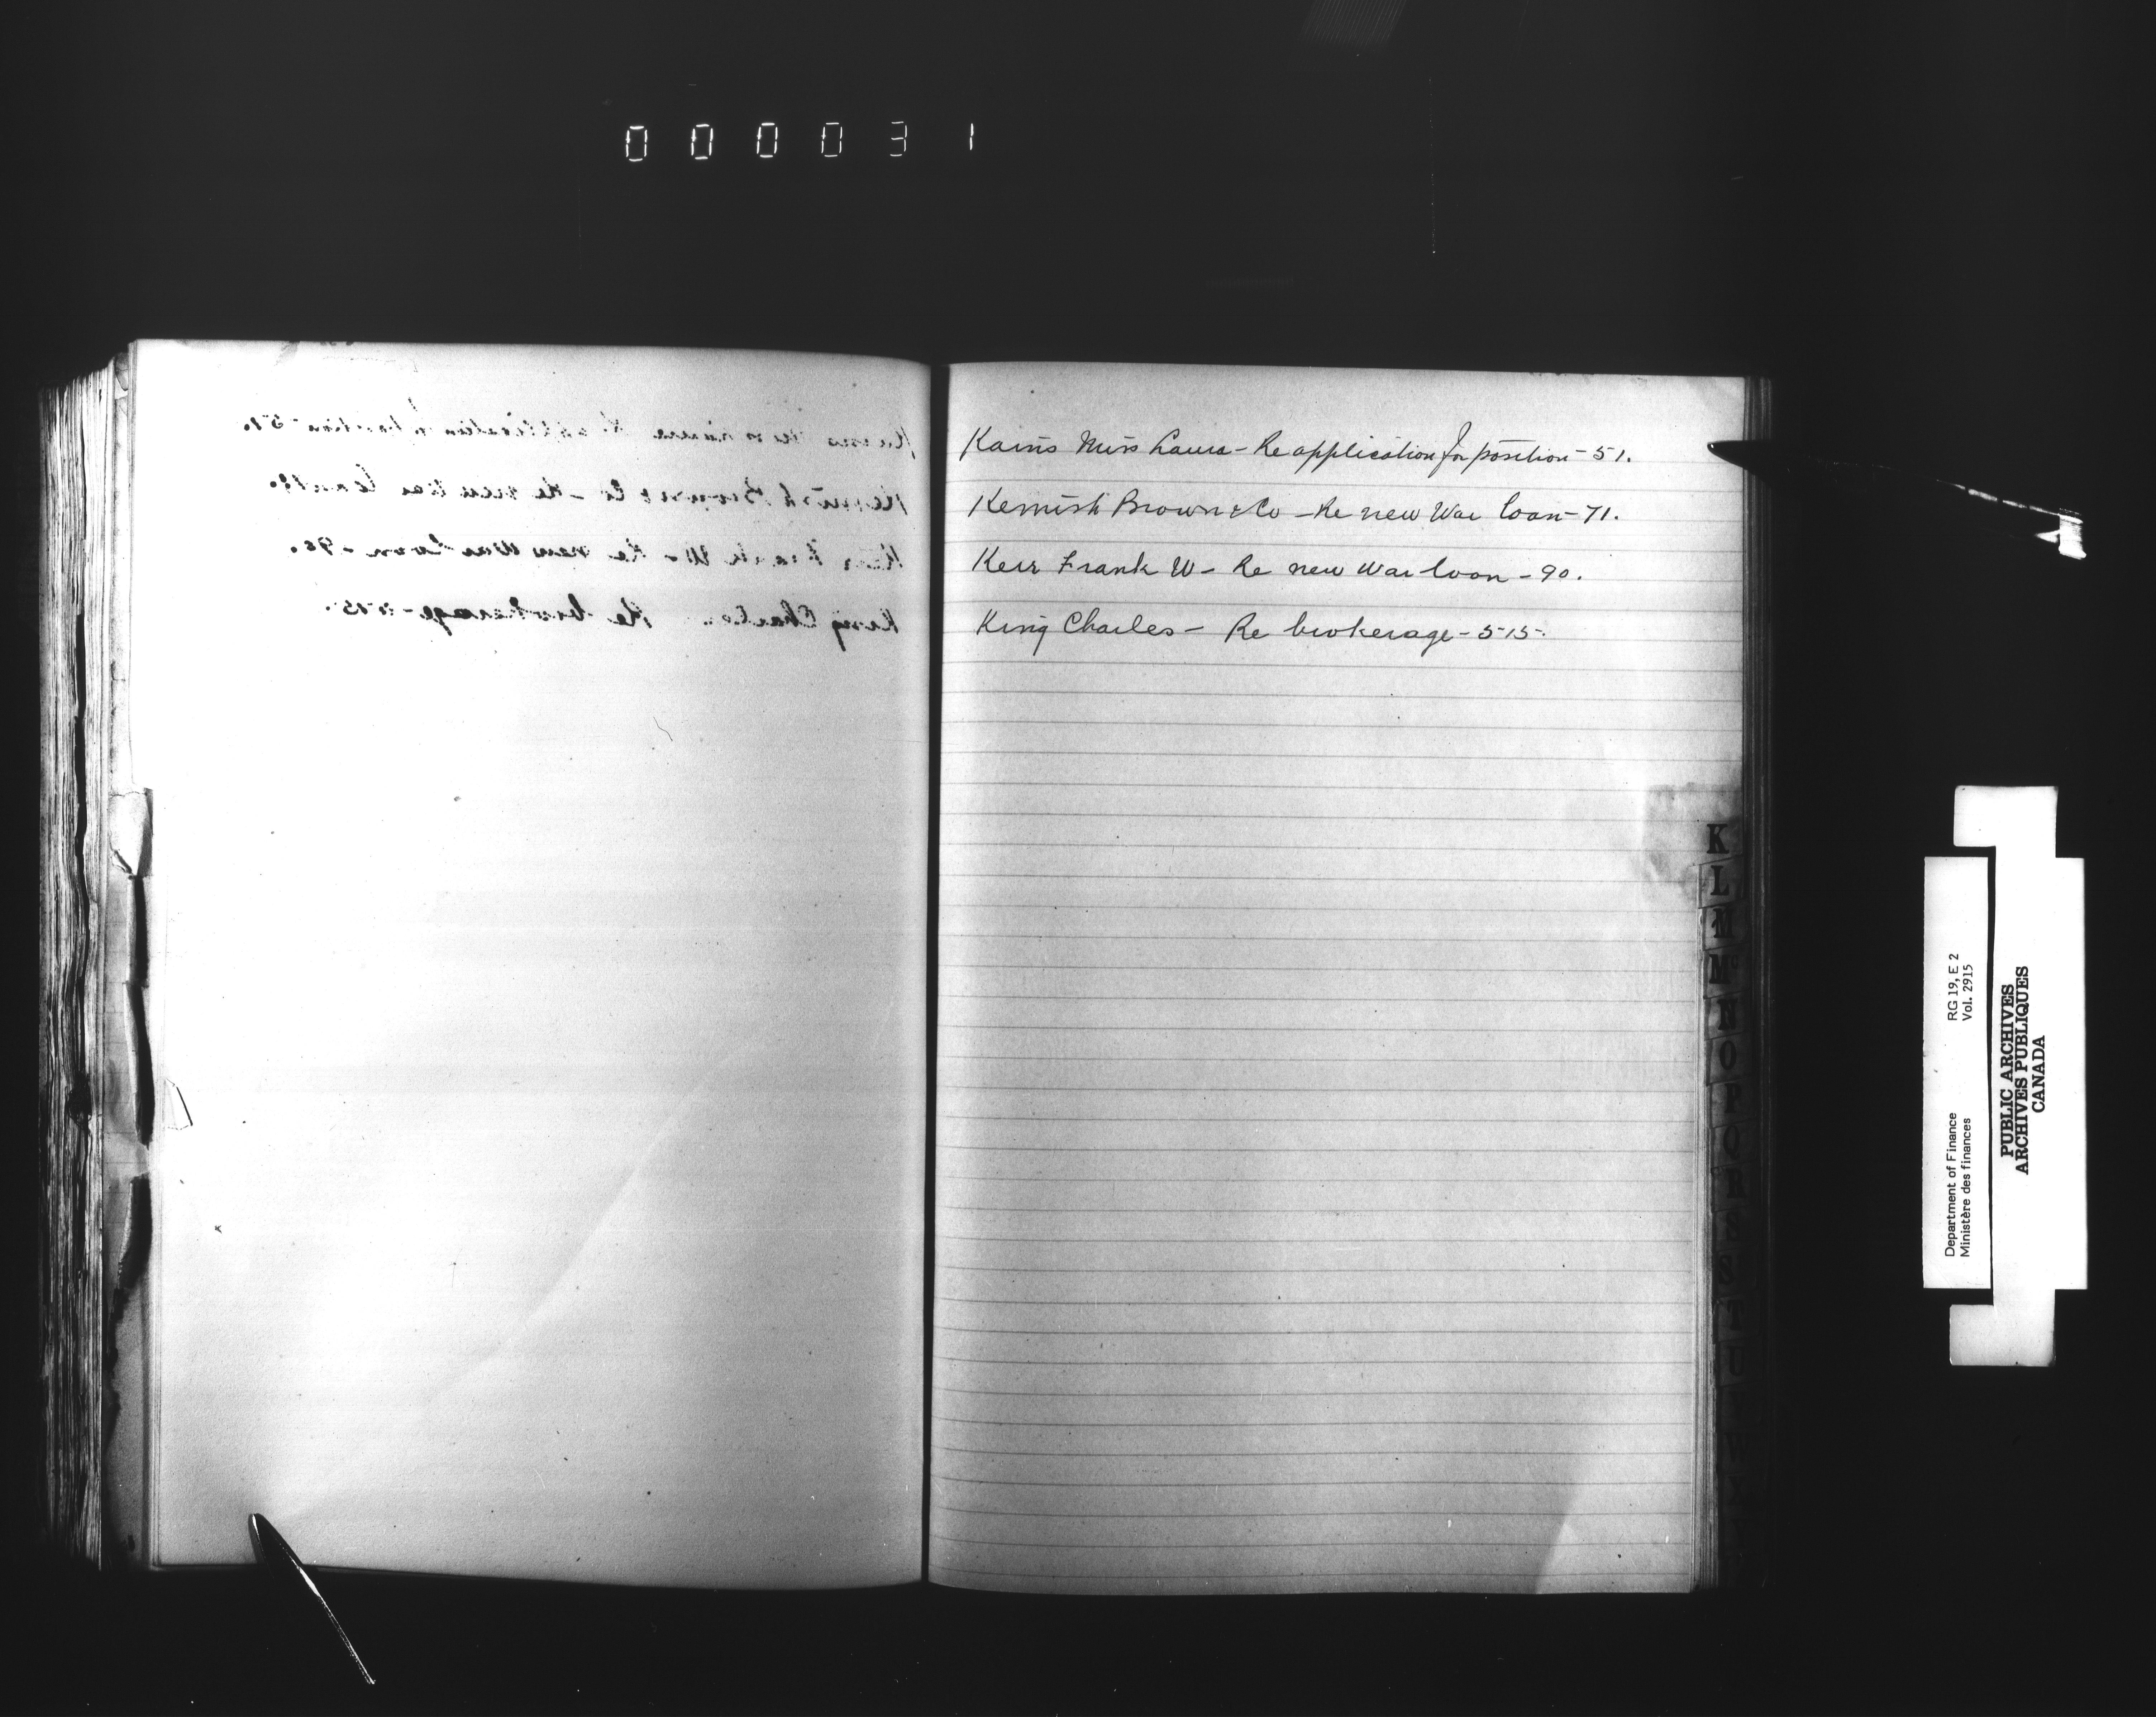 000031
Kains Miss Laura - Re application for position - 51.
Kemish Brown & Co - Re new War loan - 71.
Kerr Frank W - Re new War loan - 90.
King Charles - Re brokerage - 515.
K
L
M
Mc
N
O
P
Q
R
S
T
U
Department of Finance RG 19, E 2
Ministère des finances Vol. 2915
PUBLIC ARCHIVES
ARCHIVES PUBLIQUES
CANADA